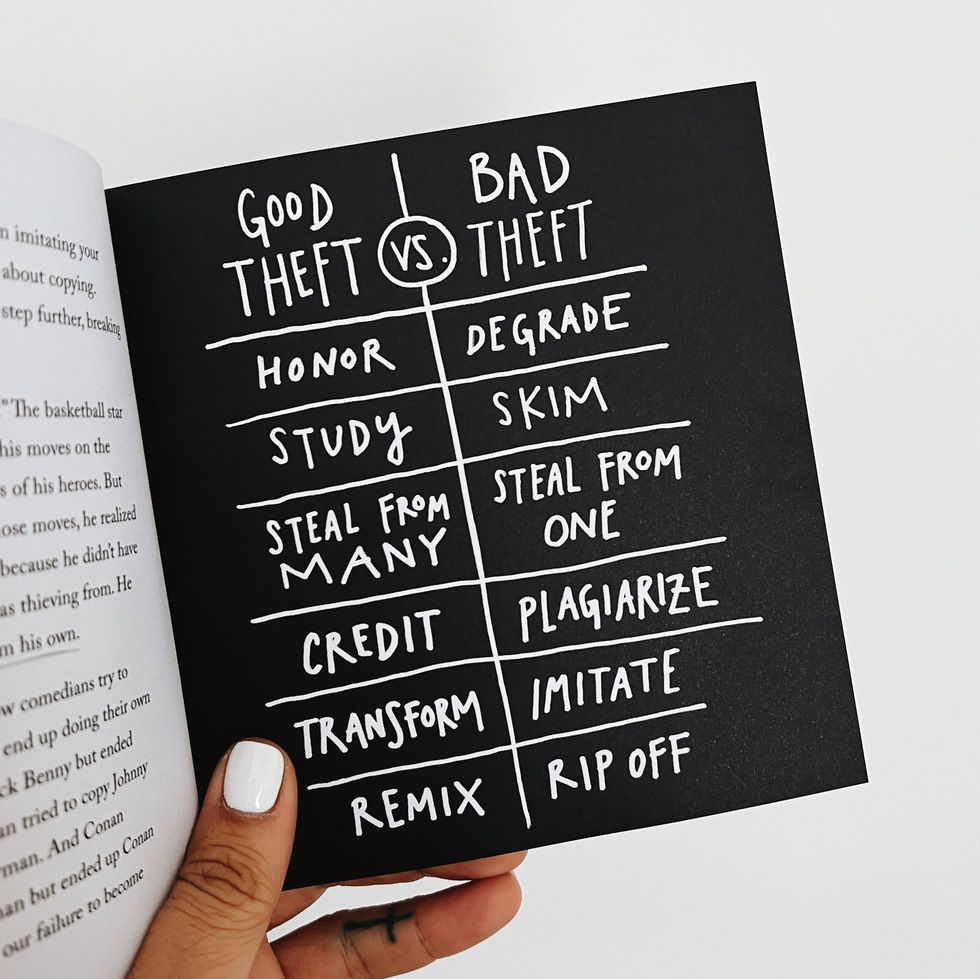 n imitating your
about copying.
step further, breaking
" The basketball star
his moves on the
s of his heroes. But
ose moves, he realized
because he didn't have
as thieving from. He
m his own.
w comedians try to
end up doing their own
ck Benny but ended
an tried to copy Johnny
rman. And Conan
nan but ended up Conan
our failure to become
GOOD
THEFT
VS.
BAD
THEFT
HONOR
DEGRADE
STUDY
SKIM
STEAL FROM
MANY
STEAL FROM
ONE
CREDIT
PLAGIARIZE
TRANSFORM
IMITATE
REMIX
RIP OFF